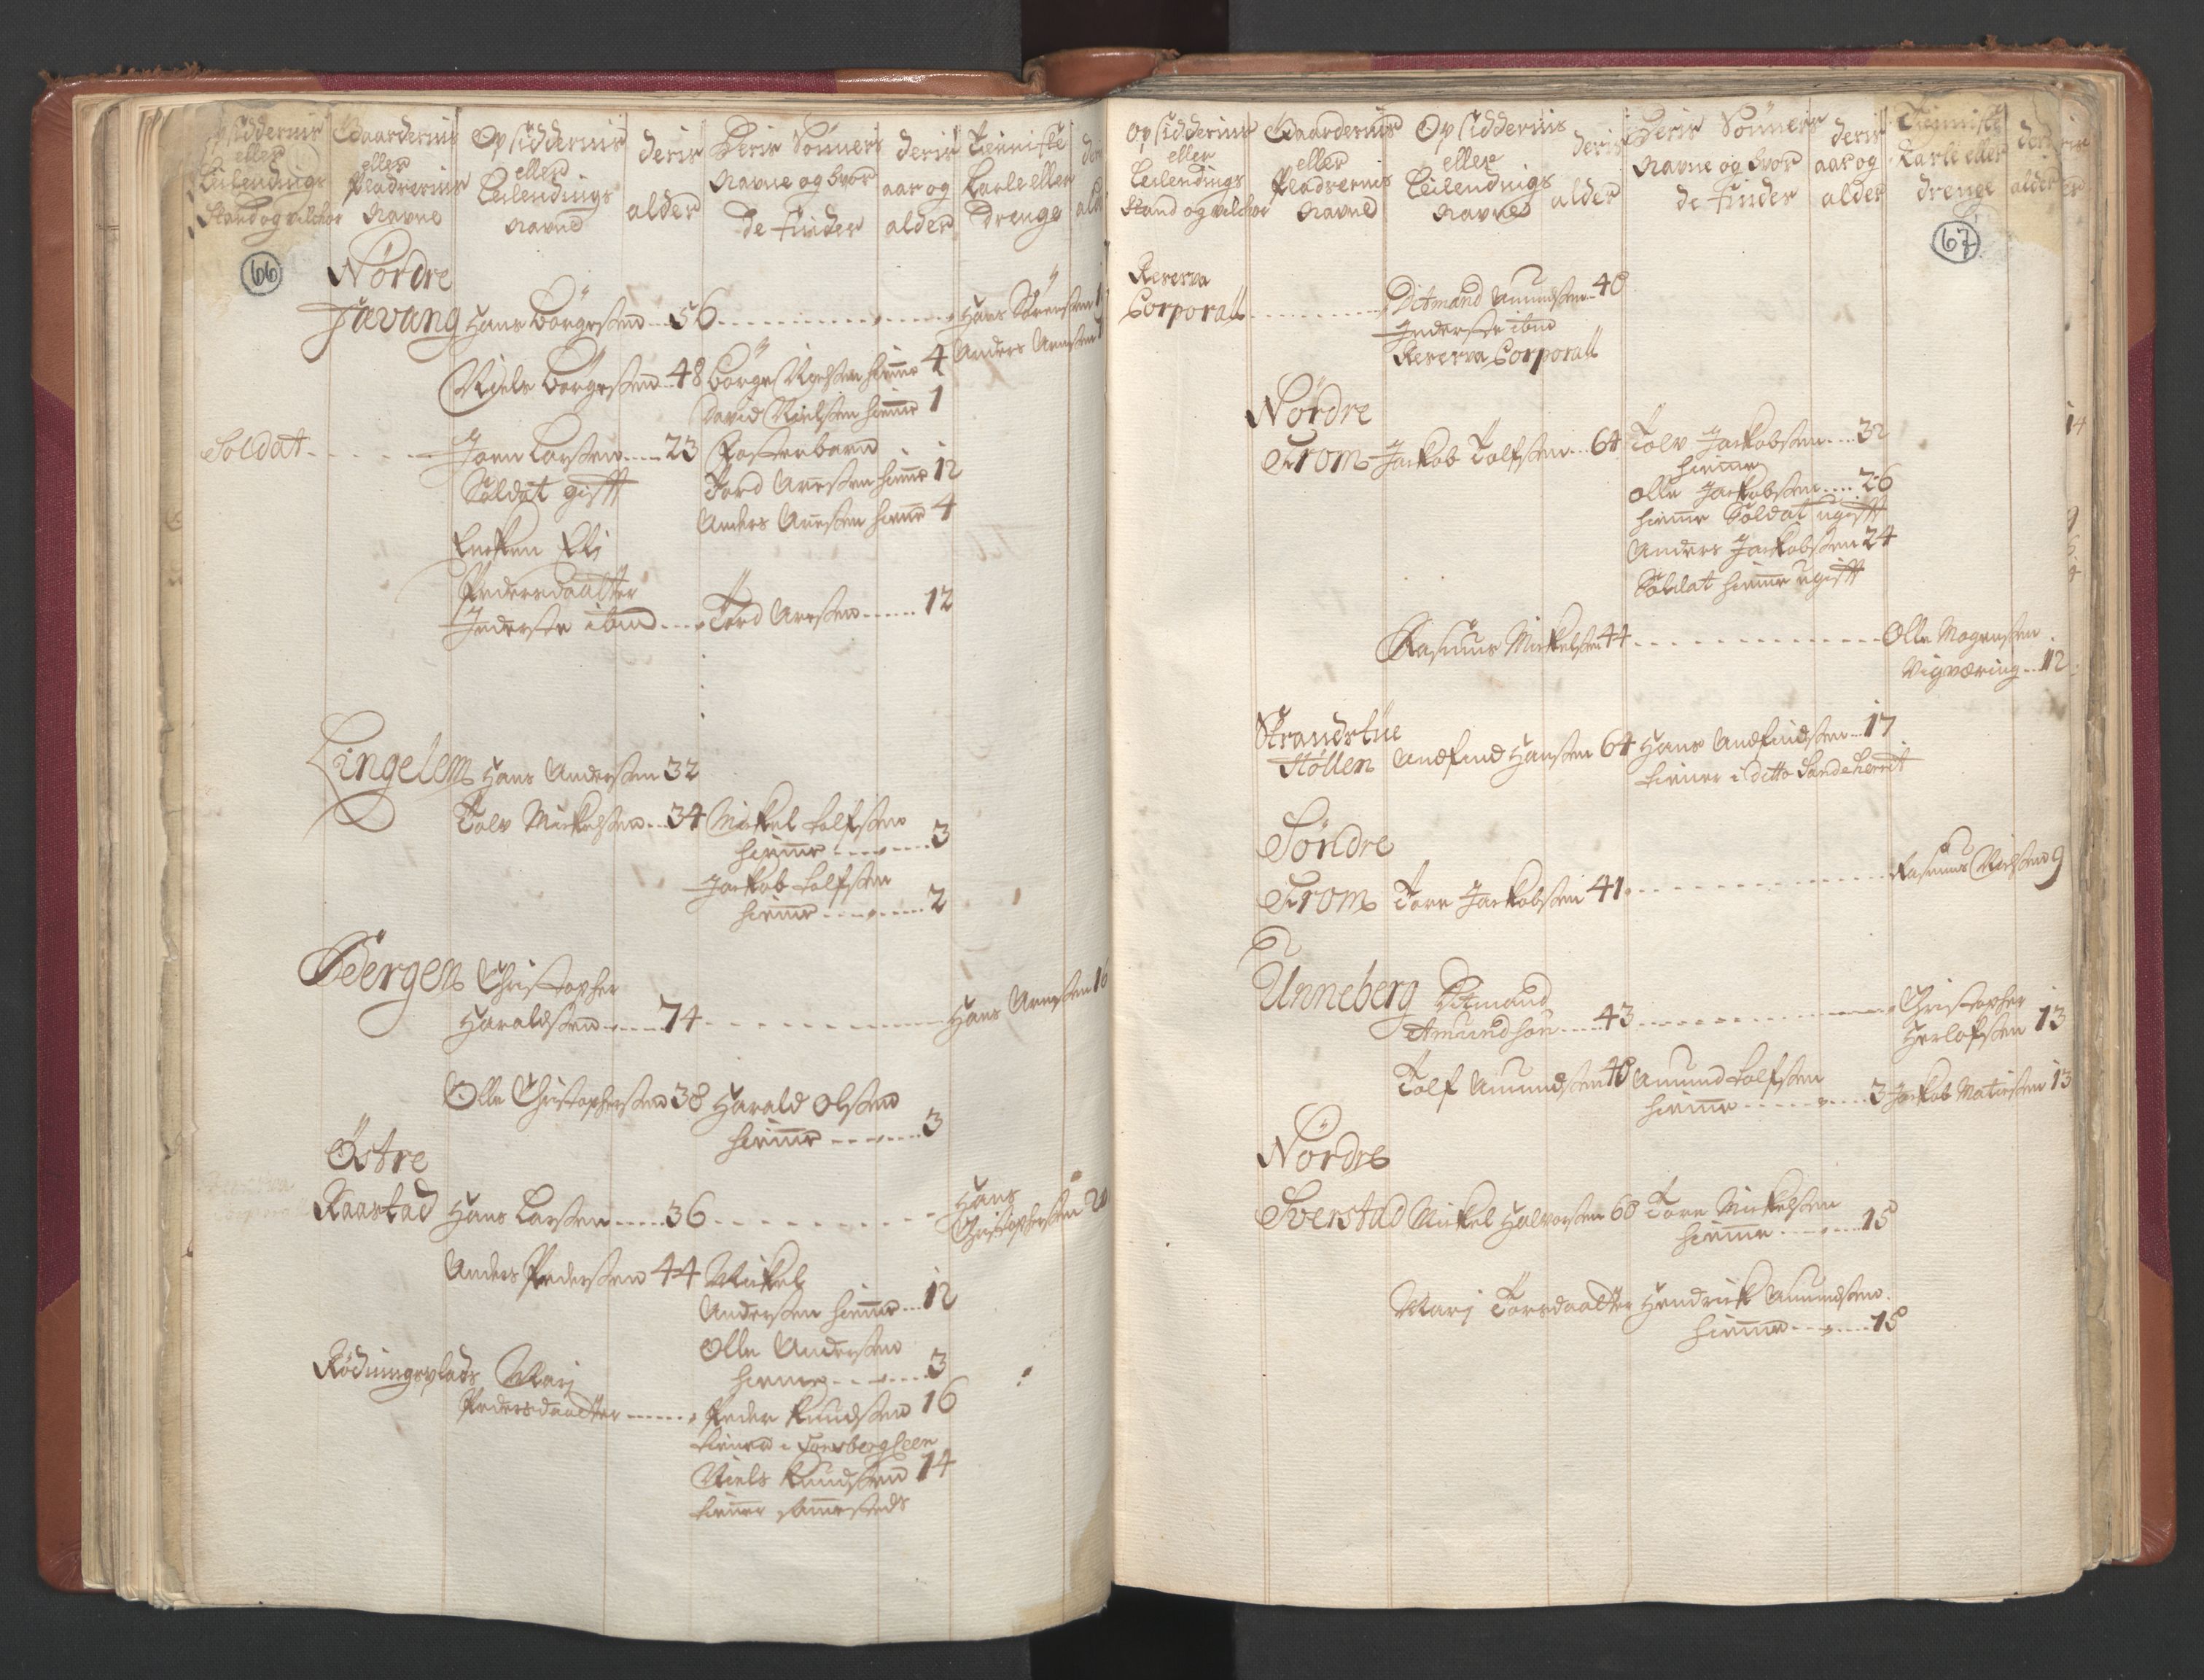 Opsiddernis
eller
Leilendings
Stand og vilchor
Gaardernis
eller
Pladzernis
Navne
Opsiddernis
eller
Leilendings
Navne
deris
alder
Deris Sönners
Navne og hvor
de tiender
deris
aar og
alder
Tienniste
Karle eller
drenge
66
Nordre
Jaвang Hans Börgesen 56 Hans Sörensen
Anders Arnesen
Niels Börgesen 48 Börge Nielsen hieme 4
David Nielsen hieme 1
Soldat Joen Larsen 23 Fosterbarn
Soldat gifft Tord Aresen hieme 12
Anders Aresen hieme 4
Encken Eli
Pedersdaatter
Inderste ibid Tord Aresen 12
Lingelem Hans Andersen 32
Tolv Mickelsen 34 Mickel Tolfsen
hieme 3
Jackob Tolfsen
hieme 2
Bergem Christopher
Haraldsen 74 Hans Arnesen 16
Olle Christophersen 38 Harald Olsen
hieme 3
Östre
Raastad Hans Larsen 36 Hans
Christophersen 20
Anders Pedersen 44 Mickel
Andersen hieme 12
Olle Andersen
hieme 3
Rödningsplads Mari
Pedersdaatter Peder Knudsen 16
tiener i Tonsberg Leen
Niels Knudsen 14
tiener sammesteds
Opsiddernis
eller
Leilendings
Stand og vilchor
Gaardernis
eller
Pladzernis
Navne
Opsiddernis
eller
Leilendings
Navne
deris
alder
Deris Sönners
Navne og hvor
de tiender
deris
aar og
alder
Tienniste
Karle eller
drenge
deris
alder
67
Reserva
Corporall Ditmand Amundsen 40
Inderste ibid
Reserva Corporall
Nordre
From Jackob Tolfsen 64 Tolv Jackobsen 32
hieme
Olle Jackobsen 26
hieme Soldat ugifft
Anders Jackobsen 24
Soldat hieme ugifft
Rasmus Mickelsen 44 Olle Mogensen
Vigværing 12
Strandstue
Höllen Andfind Hansen 64 Hans Andfindsen 17
tiener i ditto Sandeherrit
Söndre
From Tore Jackobsen 41 Rasmus Nielsen 9
Unneberg Ditmand
Amundsön 43 Christopher
Herlofsen 13
Tolf Amundsen 48 Amund Tolfsen
hieme 3 Jackob Matisen 13
Nordre
Sverstad Mickel Halvorsen 68 Tore Mickelsen
hieme 18
Mari Torsdaatter Hendrick Amundsen
hieme 18